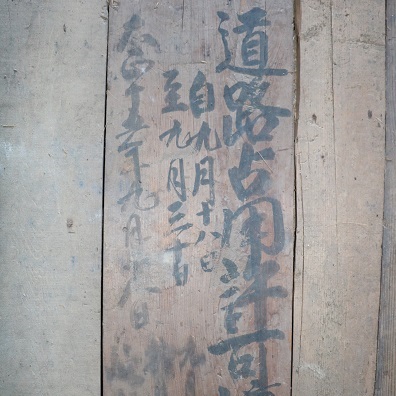 道路占用許可
自九月十八日
至九月三十日
年九月十八日